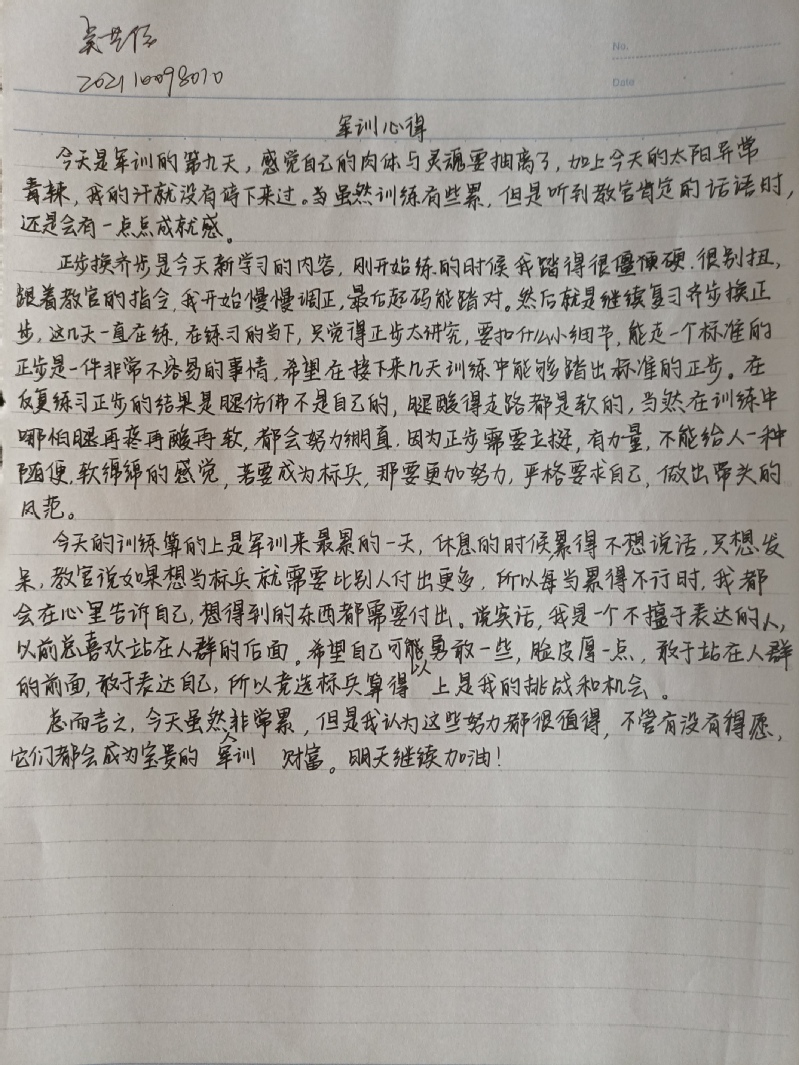 吴
202110098070
No.
Date
军训心得
今天是军训的第九天，感觉自己的肉体与灵魂要抽离了，加上今天的太阳异常
毒辣，我的汗就没有停下来过。当虽然训练有些累，但是听到教官肯定的话语时，
还是会有一点点成就感。
正步换齐步是今天新学习的内容，刚开始练的时候我踏得很僵硬，很别扭，
跟着教官的指令，我开始慢慢调正，最后起码能踏对。然后就是继续复习齐步换正
步，这几天一直在练，在练习的当下，只觉得正步太讲究，要扣什么小细节，能走一个标准的
正步是一件非常不容易的事情，希望在接下来几天训练中能够踏出标准的正步。在
反复练习正步的结果是腿仿佛不是自己的，腿酸得走路都是软的，当然在训练中
哪怕腿再疼再酸再软，都会努力绷直，因为正步需要立挺，有力量，不能给人一种
随便，软绵绵的感觉，若要成为标兵，那要更加努力，严格要求自己，做出带头的
风范。
今天的训练算的上是军训来最累的一天，休息的时候累得不想说话，只想发
呆，教官说如果想当标兵就需要比别人付出更多，所以每当累得不行时，我都
会在心里告诉自己，想得到的东西都需要付出。说实话，我是一个不擅于表达的人，
以前总喜欢站在人群的后面。希望自己可能以勇敢一些，脸皮厚一点，敢于站在人群
的前面，敢于表达自己，所以竞选标兵算得上是我的挑战和机会。
总而言之，今天虽然非常累，但是我认为这些努力都很值得，不管有没有得愿，
它们都会成为宝贵的军训财富。明天继续加油！